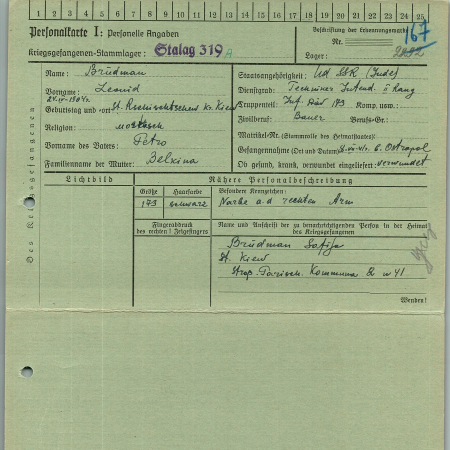 1 2 3 4 5 6 7 8 9 10 11 12 13 14 15 16 17 18 19 20 21 22 23 24 25
Personalkarte I: Personelle Angaben
Kriegsgefangenen-Stammlager: Stalag 319 A
Beschriftung der Erkennungsmarke
Nr. 167
Lager:
Des Kriegsgefangenen
Name: Brüdman
Vorname: Leonid
Geburtstag und -ort: Kr. Kiew
Religion:
Vorname des Vaters: Petro
Familienname der Mutter: Belkina
Staatsangehörigkeit: Ud SSR (Jude)
Dienstgrad: Techniker Intend. II Rang
Truppenteil: Inf. Div 173 Komp. usw.:
Zivilberuf: Bauer Berufs-Gr.:
Matrikel-Nr. (Stammrolle des Heimatstaates):
Gefangennahme (Ort und Datum): Ostropol
Ob gesund, krank, verwundet eingeliefert: verwundet
Lichtbild
Nähere Personalbeschreibung
Größe Haarfarbe Besondere Kennzeichen:
173 schwarz Narbe a.d rechten Arm
Fingerabdruck
des rechten! Zeigefingers
Name und Anschrift der zu benachrichtigenden Person in der Heimat
des Kriegsgefangenen
Brüdman Sofija
St. Kiew
Kommuna 2 w 41
Wenden!